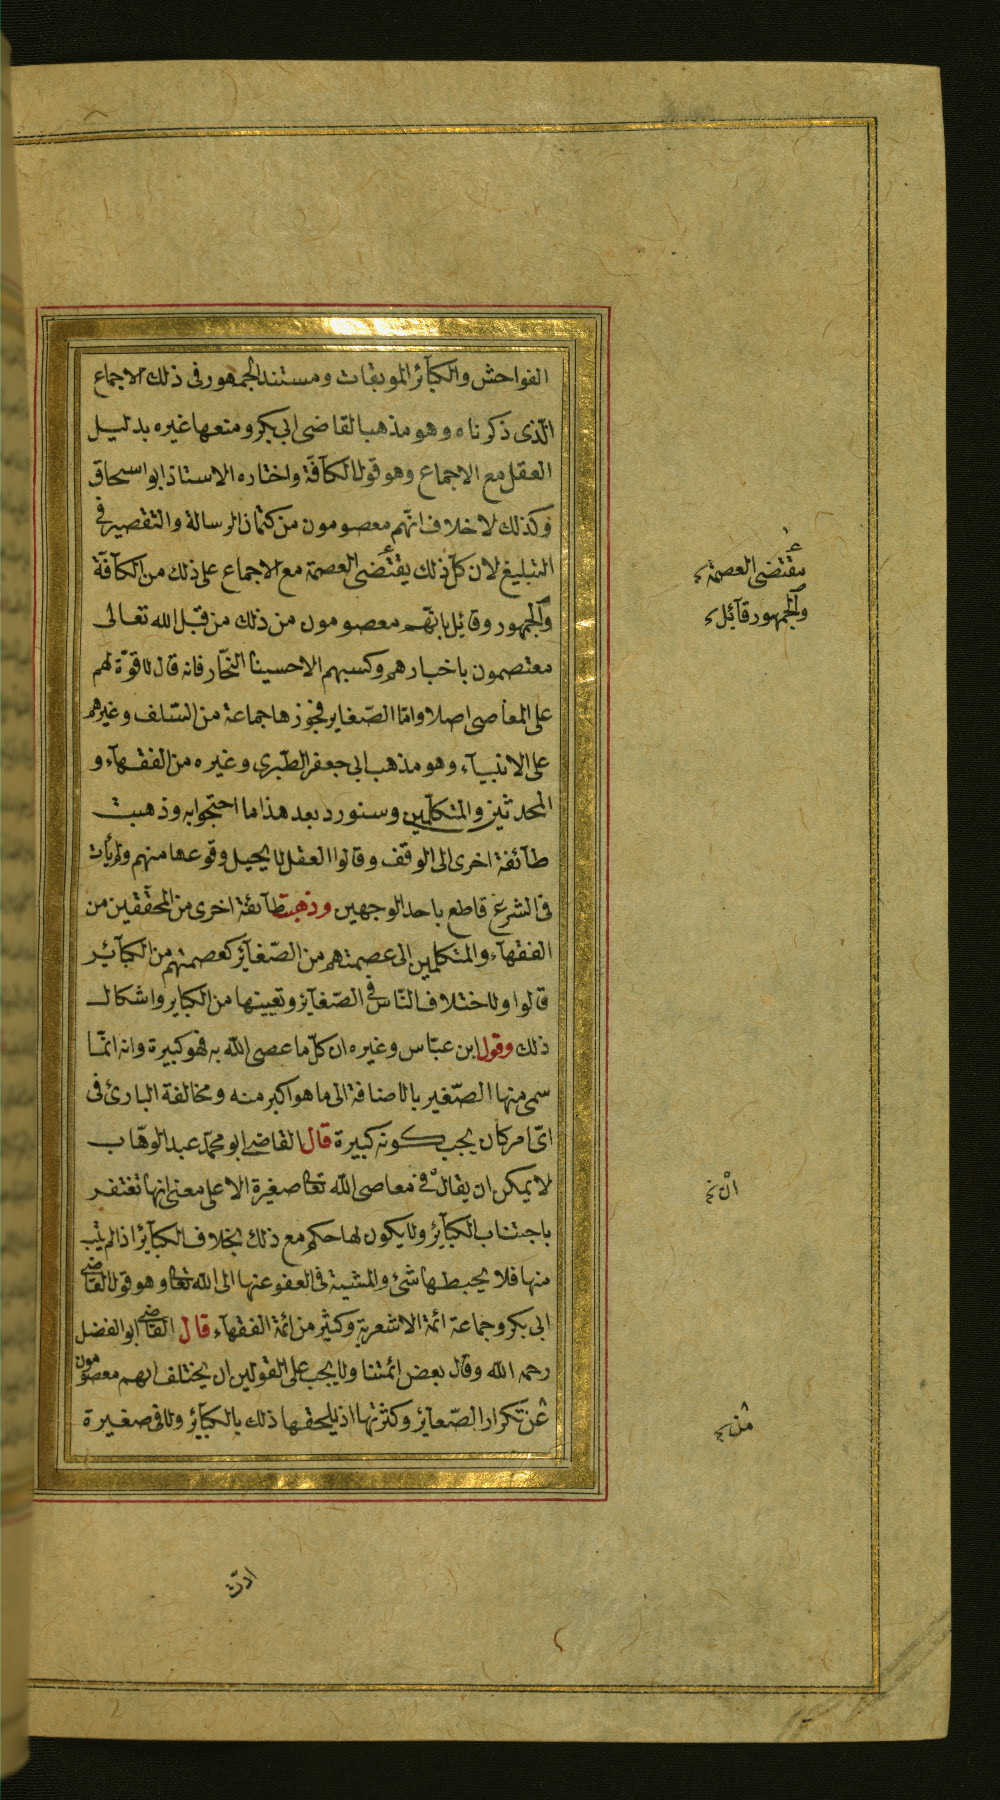 الفواحش والكبآئر الموبقات ومستند الجمهور فى ذلك الاجماع
الّذى ذكرناه وهو مذهب القاضى ابى بكر ومنعها غيره بدليل
العقل مع الاجماع وهو قول الكآفّة واختاره الاستاذ ابو اسحاق
وكذلك لا خلاف انّهم معصومون من كتمان الرسالة والتقصير فى
التبليغ لان كلّ ذلك يقتضى العصمة مع الاجماع على ذلك من الكآفّة
والجمهور وقائل بانّهم معصومون من ذلك من قبل الله تعالى
معتصمون باختيارهم وكسبهم الا حسينا النجّار فانه قال لا قوّة لهم
على المعاصى اصلا وامّا الصّغاير فجوزها جماعة من السّلف وغيرهم
على الانبيآء وهو مذهب ابى جعفر الطّبرى وغيره من الفقهآء و
المحدثين والمتكلّمين وسنورد بعد هذا ما احتجوا به وذهبت
طآئفة اخرى الى الوقف وقالوا العقل لا يحيل وقوعها منهم ولم يأت
فى الشرع قاطع باحد الوجهين وذهبت طآئفة اخرى من المحقّقين من
الفقهآء والمتكلمين الى عصمتهم من الصّغآئر كعصمتهم من الكبآئر
قالوا ولاختلاف النّاس فى الصّغآئر وتعيينها من الكباير واشكال
ذلك وقول ابن عبّاس وغيره ان كلّ ما عصى اللّه به فهو كبيرة وانه انمّا
سمى منها الصّغير بالاضافة الى ما هو اكبر منه ومخالفة البارئ فى
اىّ امر كان يجب كونه كبيرة قال القاضى ابو محمّد عبد الوهّاب
لا يمكن ان يقال فى معاصى اللّه تعا صغيرة الا على معنى انها تغتفر
باجتناب الكبآئر ولا يكون لها حكم مع ذلك بخلاف الكبآئر اذا لم يتب
منها فلا يحبطها شئ والمشية فى العفو عنها الى اللّه تعا وهو قول القاضى
ابى بكر وجماعة ائمّة الاشعرية وكثير من ائمّة الفقهآء قال القاضى ابو الفضل
رحمه اللّه وقال بعض ائمتنا ولا يجب على القولين ان يختلف انهم معصومون
عن تكرار الصّغآئر وكثرتها اذ يلحقها ذلك بالكبآئر ولا فى صغيرة
مقتضى العصمة
والجمهور قآئل
انّ
من
ادّت